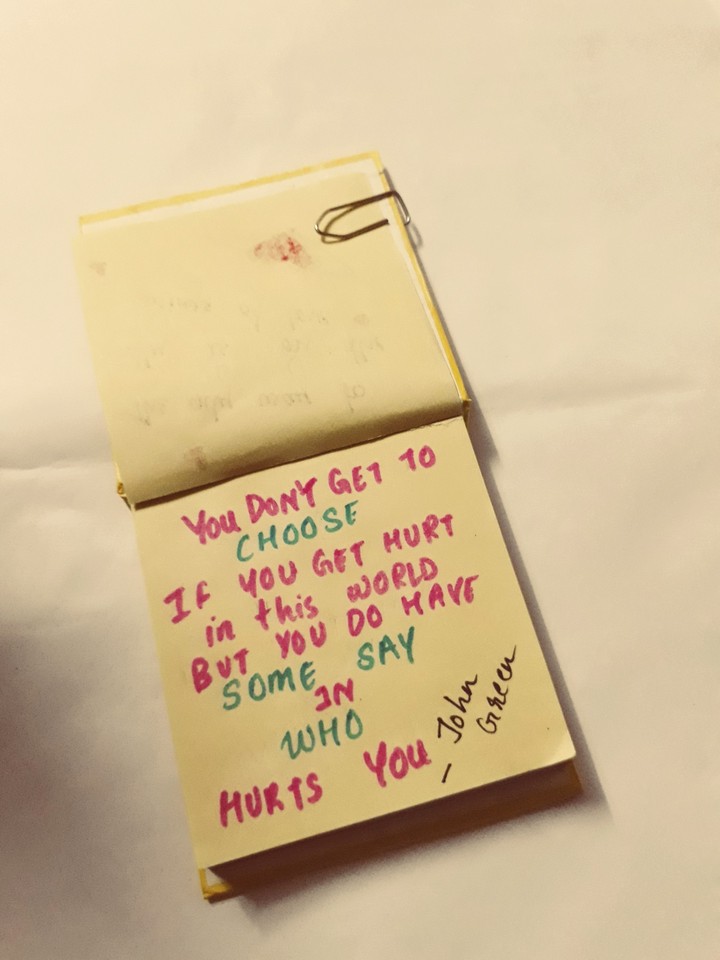 YOU DON'T GET TO
CHOOSE
IF YOU GET HURT
in this WORLD
BUT YOU DO HAVE
SOME SAY
IN
WHO
HURTS YOU
- John
Green